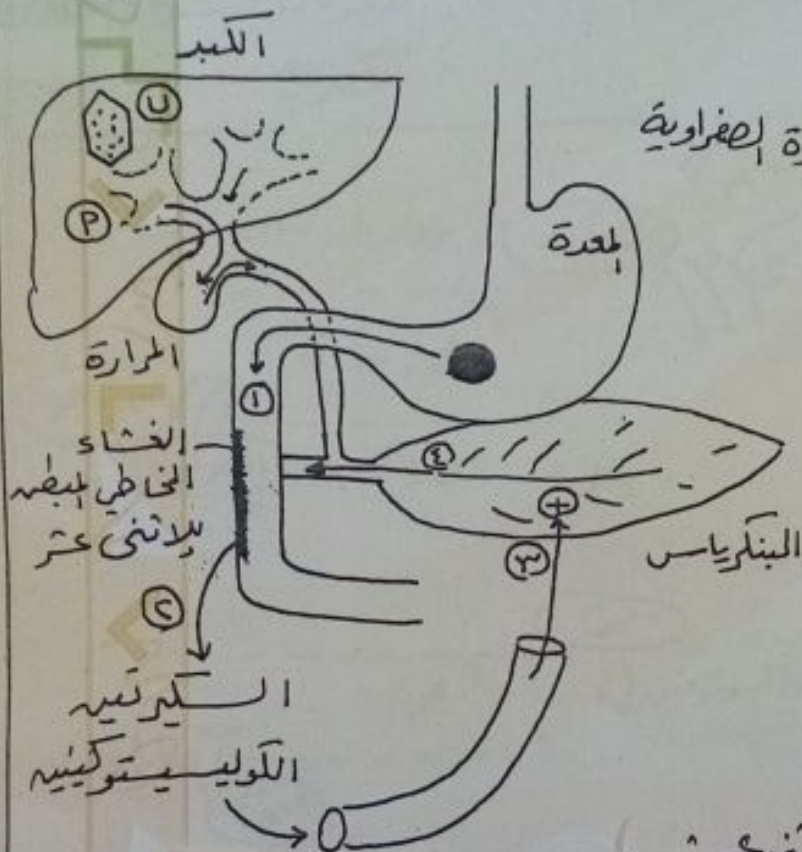 الكبد
ں
الصفراوية
م
المعدة
المرارة
١
الغشاء
المخاطي المبطن
للاثنى عشر
٤
+
٣
البنكرياس
٢
السكيرتين
الكوليسيستوكينين